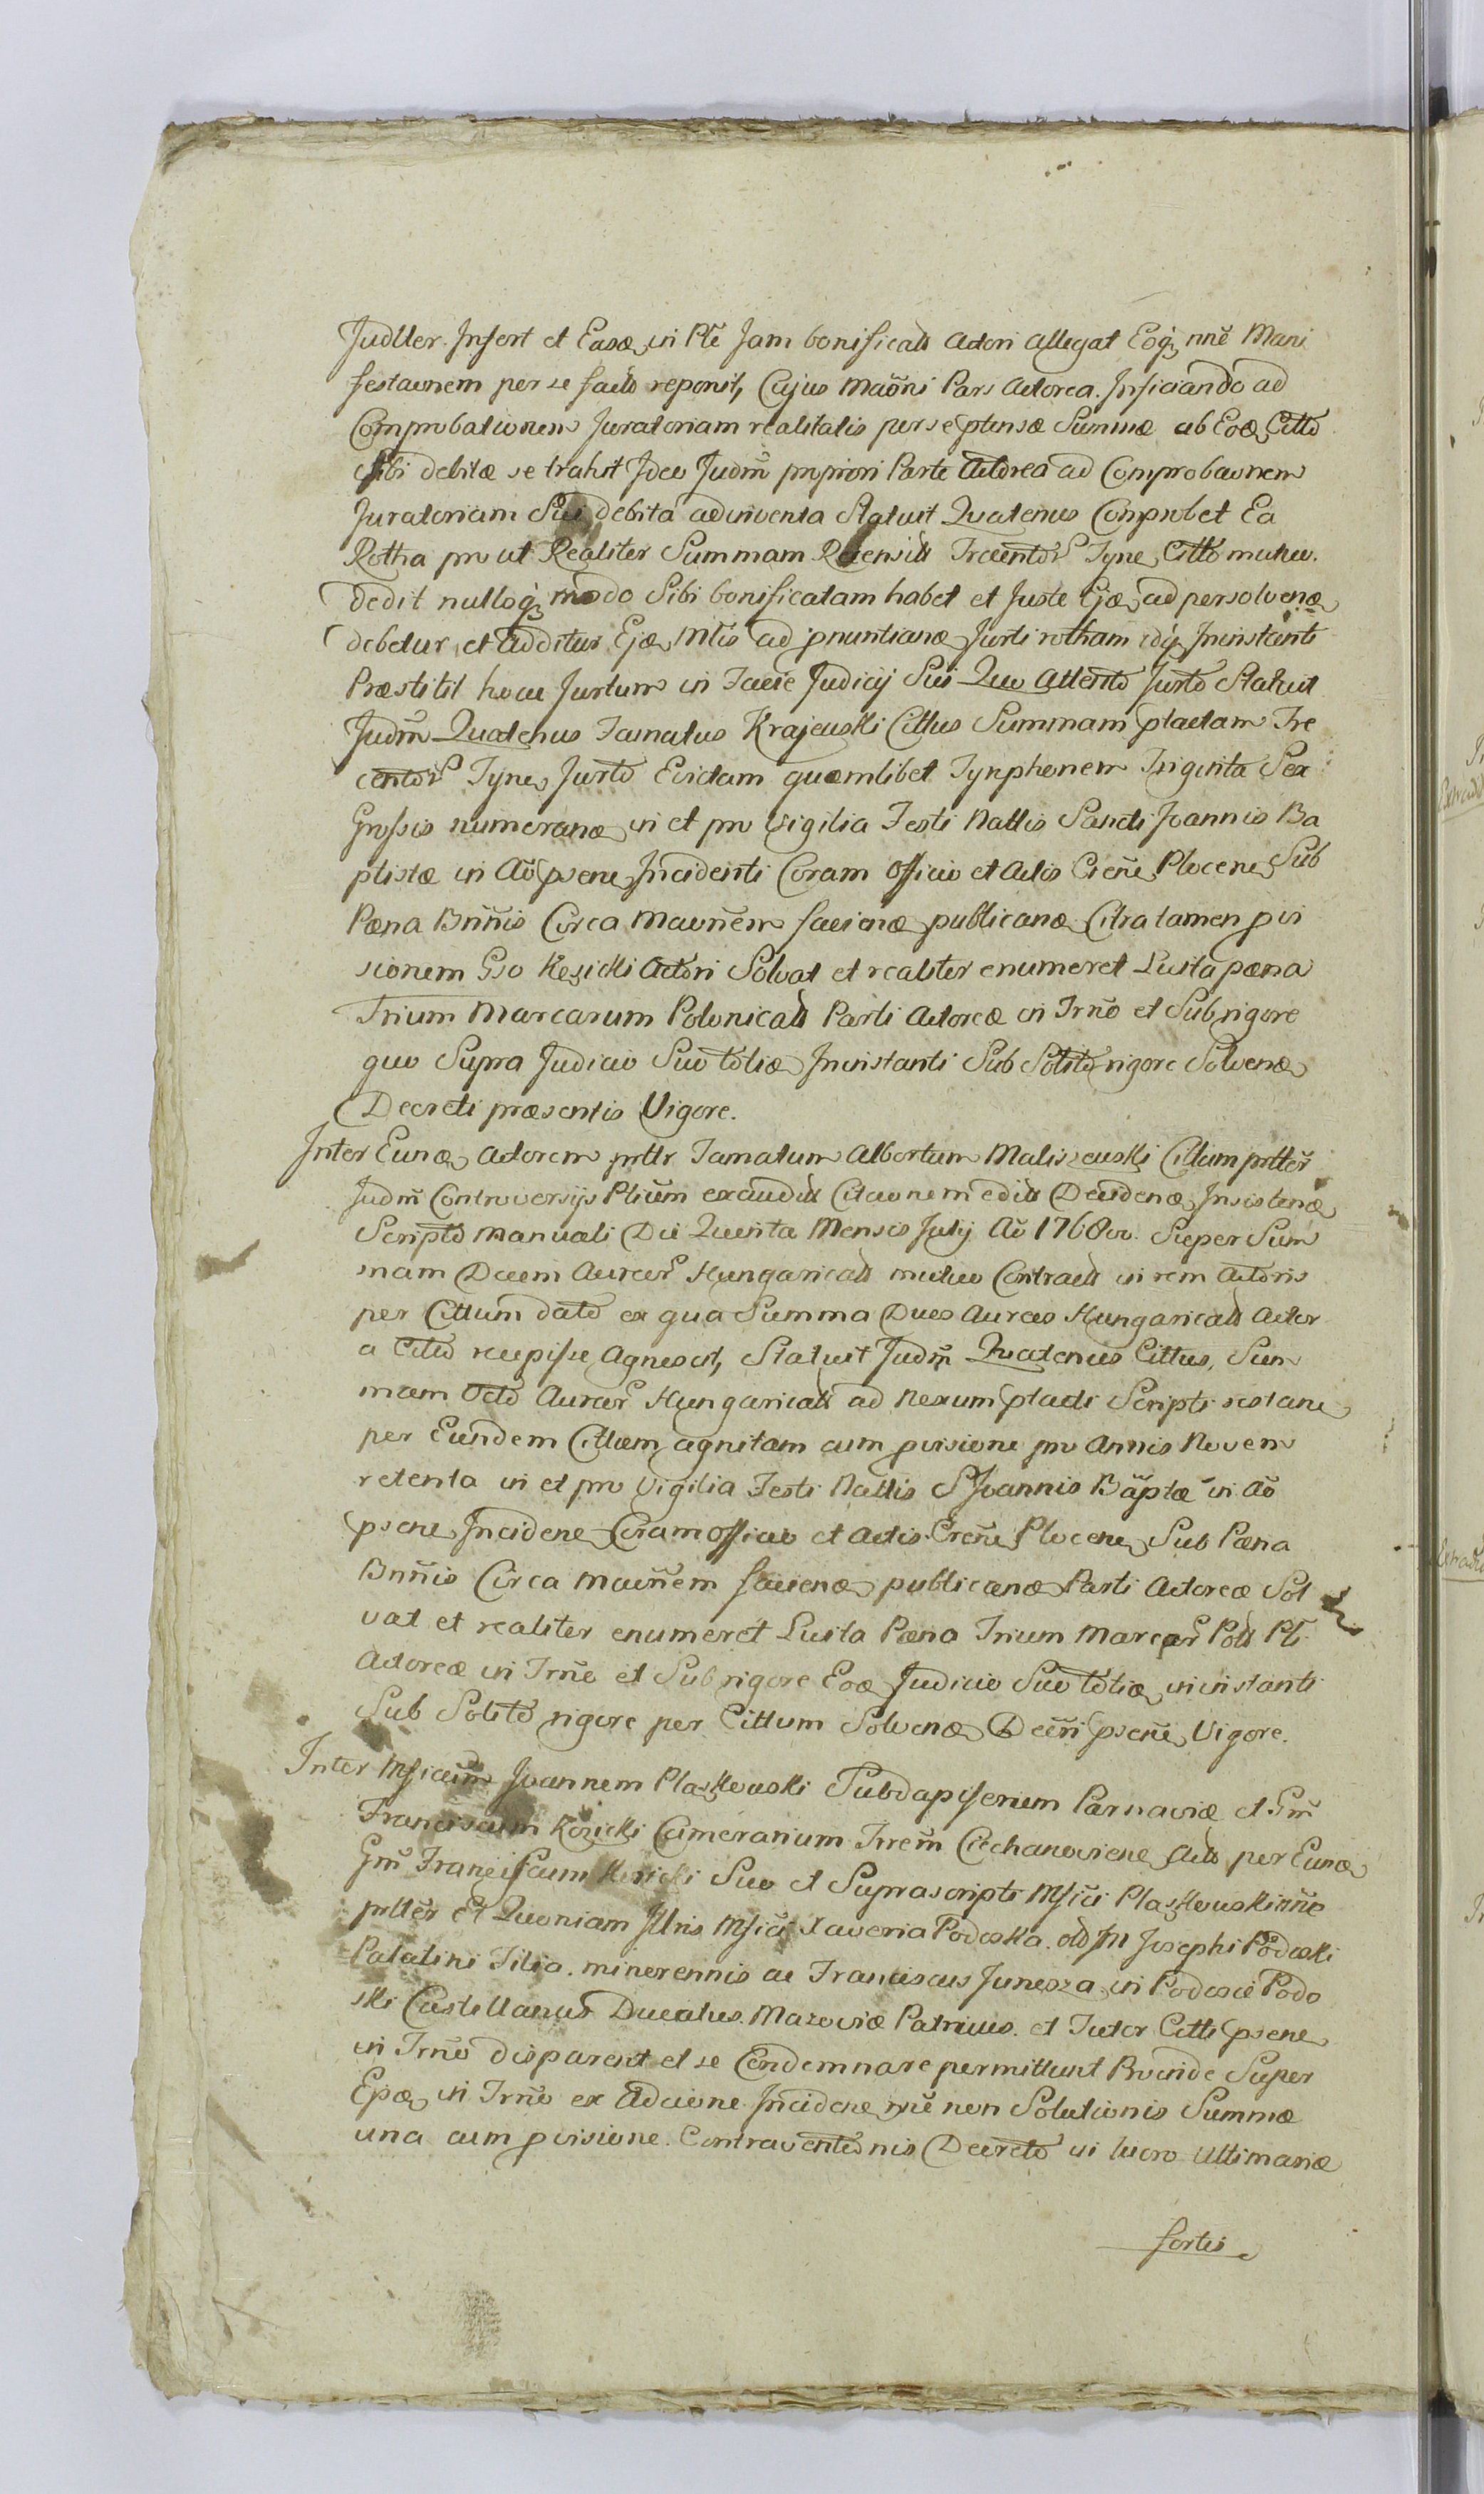 Judller Insert et Easæ in Pte Jam bonificatt actori allegat Eoq nnē Mani
festaonem per se facto reponit, Cujus maōni Pars Actorea. Inficiando ad
Comprobationem Juratoriam realitatis per se ptensæ Summæ ab Eoæ Citto
Sibi debitæ se trahit Ideo Judm̄ propriori Parte Actorea ad Comprobaonem
Juratoriam Sui debita adinventa Statuit Quatenus Comprobet Ea
Rotha pro ut Realiter Summam Recensitt Trecentor Tyne Citto mutuo
dedit nulloq modo Sibi bonificatam habet et Juste Ejæ ad persolvenæ
debetur, et additur Ejæ Mtis ad pnuntianæ Jurti rotham idq Ininstanti
Præstitit hocce Jurtum in Facie Judicij Sui Quo attento Jurto Statuit
Judm̄ Quatenus Famatus Krajewski Cittus Summam ptactam Tre
centor Tyne Jurto Evictam quæmlibet Tynphonem Triginta Sex
Grossis numeranæ in et pro Vigilia Festi Nattis Sancti Joannis Ba
ptistæ in Aō psene Incidenti Coram Officio et Actis Crēn Plocene Sub
Pæna Bnīnis Circa maonēm facienæ publicanæ Citra tamen pvi
sionem Gso Kezicki Actori Solvat et realiter enumeret Luita pæna
Trium Marcarum Polonicatt Parti Actoreæ in Trn̄o et Sub rigore
quo Supra Judicio Suo totiæ Ininstanti Sub Solito rigore Solvenæ
Decreti præsentis Vigore.
Inter Eunæ Actorem prttr Famatum Albertum Maliszewski Cittum prttēr
Judm̄ Controversijs Ptium exauditt Citaonem editt Decidenæ Insistenæ
Scripto manuali Die Quinta Mensis Julij Aō 1768vo. Super Sum
mam Decem Aureor Hungaricatt mutuo Contractt in rem Actoris
per Cittum dato ex qua Summa Duos Aureos Hungaricatt Actor
a Citto recepisse Agnoscit, Statuit Judm̄ Quatenus Cittus, Sum
mam Octo Aureor Hungaricatt ad Nexum ptacti Scripti restane
per Eundem Cittum agnitam cum pvisione pro Annis Novem
retenta in et pro Vigilia Festi Nattis S Joannis Bāptæ in Aō
psene Incidene Coram Officio et Actis Crēn Plocene Sub Pæna
Bnīnis Circa maonēm facienæ publicanæ Parti Actoreæ Sol
vat et realiter enumeret Luita Pæna Trium Marcar Polt Pti
Actoreæ in Trn̄o et Sub rigore Eoæ Judicio Suo totiæ in instanti
Sub Solito rigore per Cittum Solvenæ Decrī psenē Vigore.
Inter Mficum Joannem Plaskowski Subdapiferum Parnaviæ et Gm̄
Franciscum Kozicki Camerarium Trrem̄ Ciechanoviene Acto per Eunæ
Gm̄ Franciscum Kozicki Suo et Suprascripti Mfici Plaskowski nn̄e
prttēr Et Quoniam Illris Mfica Xaveria Podoska. olt Jn Josephi Podoski
Palatini Filia. minorennis ac Franciscus Junosza in Podosie Podo
ski Castellanus Ducatus. Mazoviæ Patruus. et Tutor Citti psene
in Trn̄o disparent et se Condemnare permittunt Proinde Super
Epæ in Trn̄o ex Actione Incidene nnē non Solutionis Summæ
una cum pvisione. Contraventionis Decreto in lucro Ultimariæ
fortis